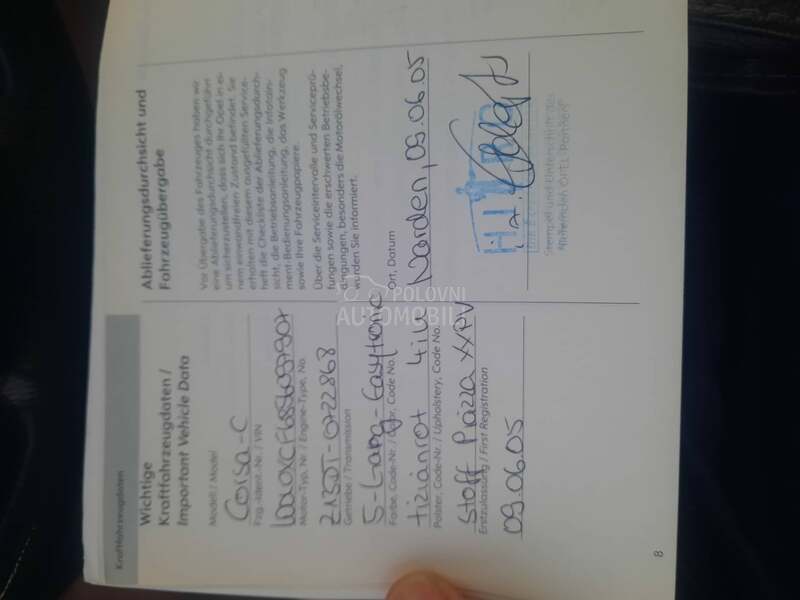 Kraftfahrzeugdaten
Wichtige
Kraftfahrzeugdaten /
Important Vehicle Data
Modell / Model
Corsa-C
Fzg.-Ident.-Nr. / VIN
Motor-Typ, Nr. / Engine-Type, No.
Z13DT-0722868
Getriebe / Transmission
5-Gang-Easytronic
Farbe, Code-Nr. / Color, Code No.
tizianrot 4iU
Polster, Code-Nr. / Upholstery, Code No.
Stoff Piazza XXPV
Erstzulassung / First Registration
09.06.05
8
Ablieferungsdurchsicht und
Fahrzeugübergabe
Vor Übergabe des Fahrzeuges haben wir
eine Ablieferungsdurchsicht durchgeführt
um sicherzustellen, dass sich Ihr Opel in ei-
nem einwandfreien Zustand befindet. Sie
erhalten mit diesem ausgefüllten Service-
heft die Checkliste der Ablieferungsdurch-
sicht, die Betriebsanleitung, die Infotain-
ment-Bedienungsanleitung, das Werkzeug
sowie Ihre Fahrzeugpapiere.
Über die Serviceintervalle und Serviceprü-
fungen sowie die erschwerten Betriebsbe-
dingungen, besonders die Motorölwechsel,
wurden Sie informiert.
Norden, 09.06.05
Ort, Datum
Stempel und Unterschrift des
OPEL Partners
POLOVNI
AUTOMOBILI